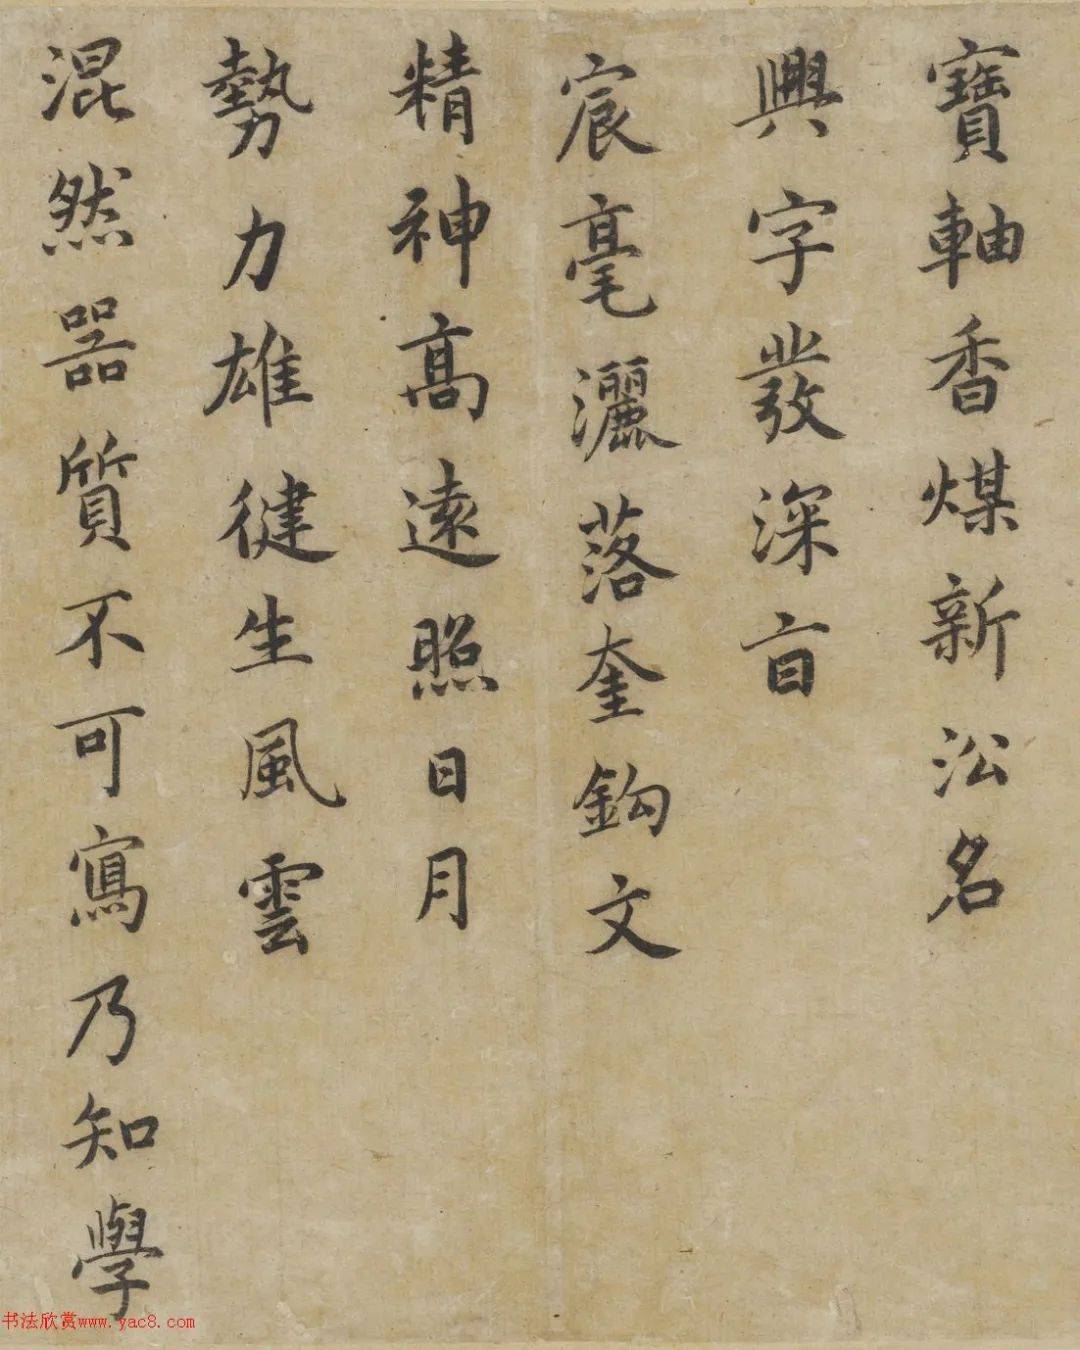 寶軸香煤新沁名
興字發深㫖
宸毫灑落奎鈎文
精神高遠照日月
勢力雄健生風雲
混然器質不可寫乃知學
书法欣赏www.yac8.com